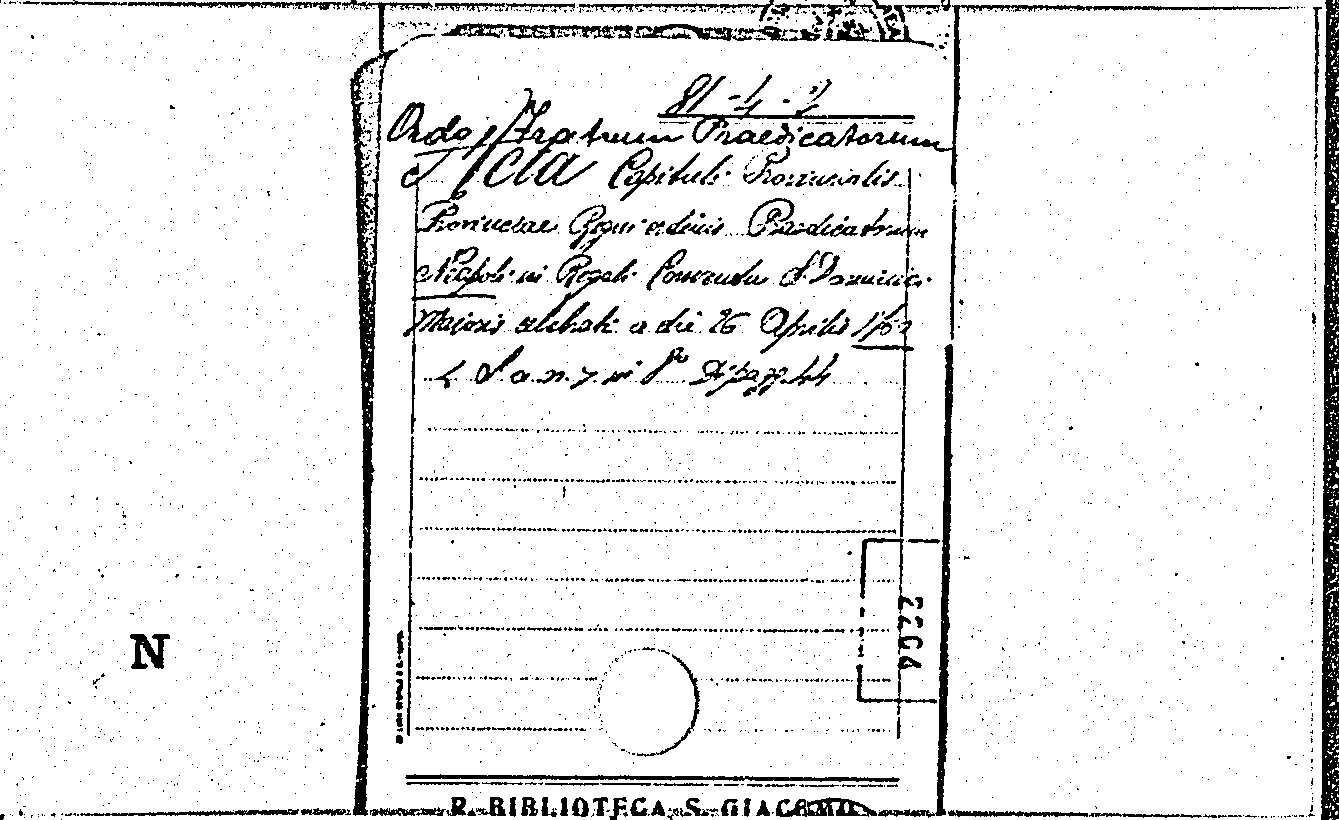 Ordo Fratrum Praedicatorum
Acta Capituli Provincialis
Provinciae Regni ordinis Praedicatorum
Neapoli in Regali Conventu S. Dominici
Majoris celebrati a die 26 Aprilis
S. a. n. y in 8° Di pagg. 44
9022
N
R. BIBLIOTECA S. GIACOMO